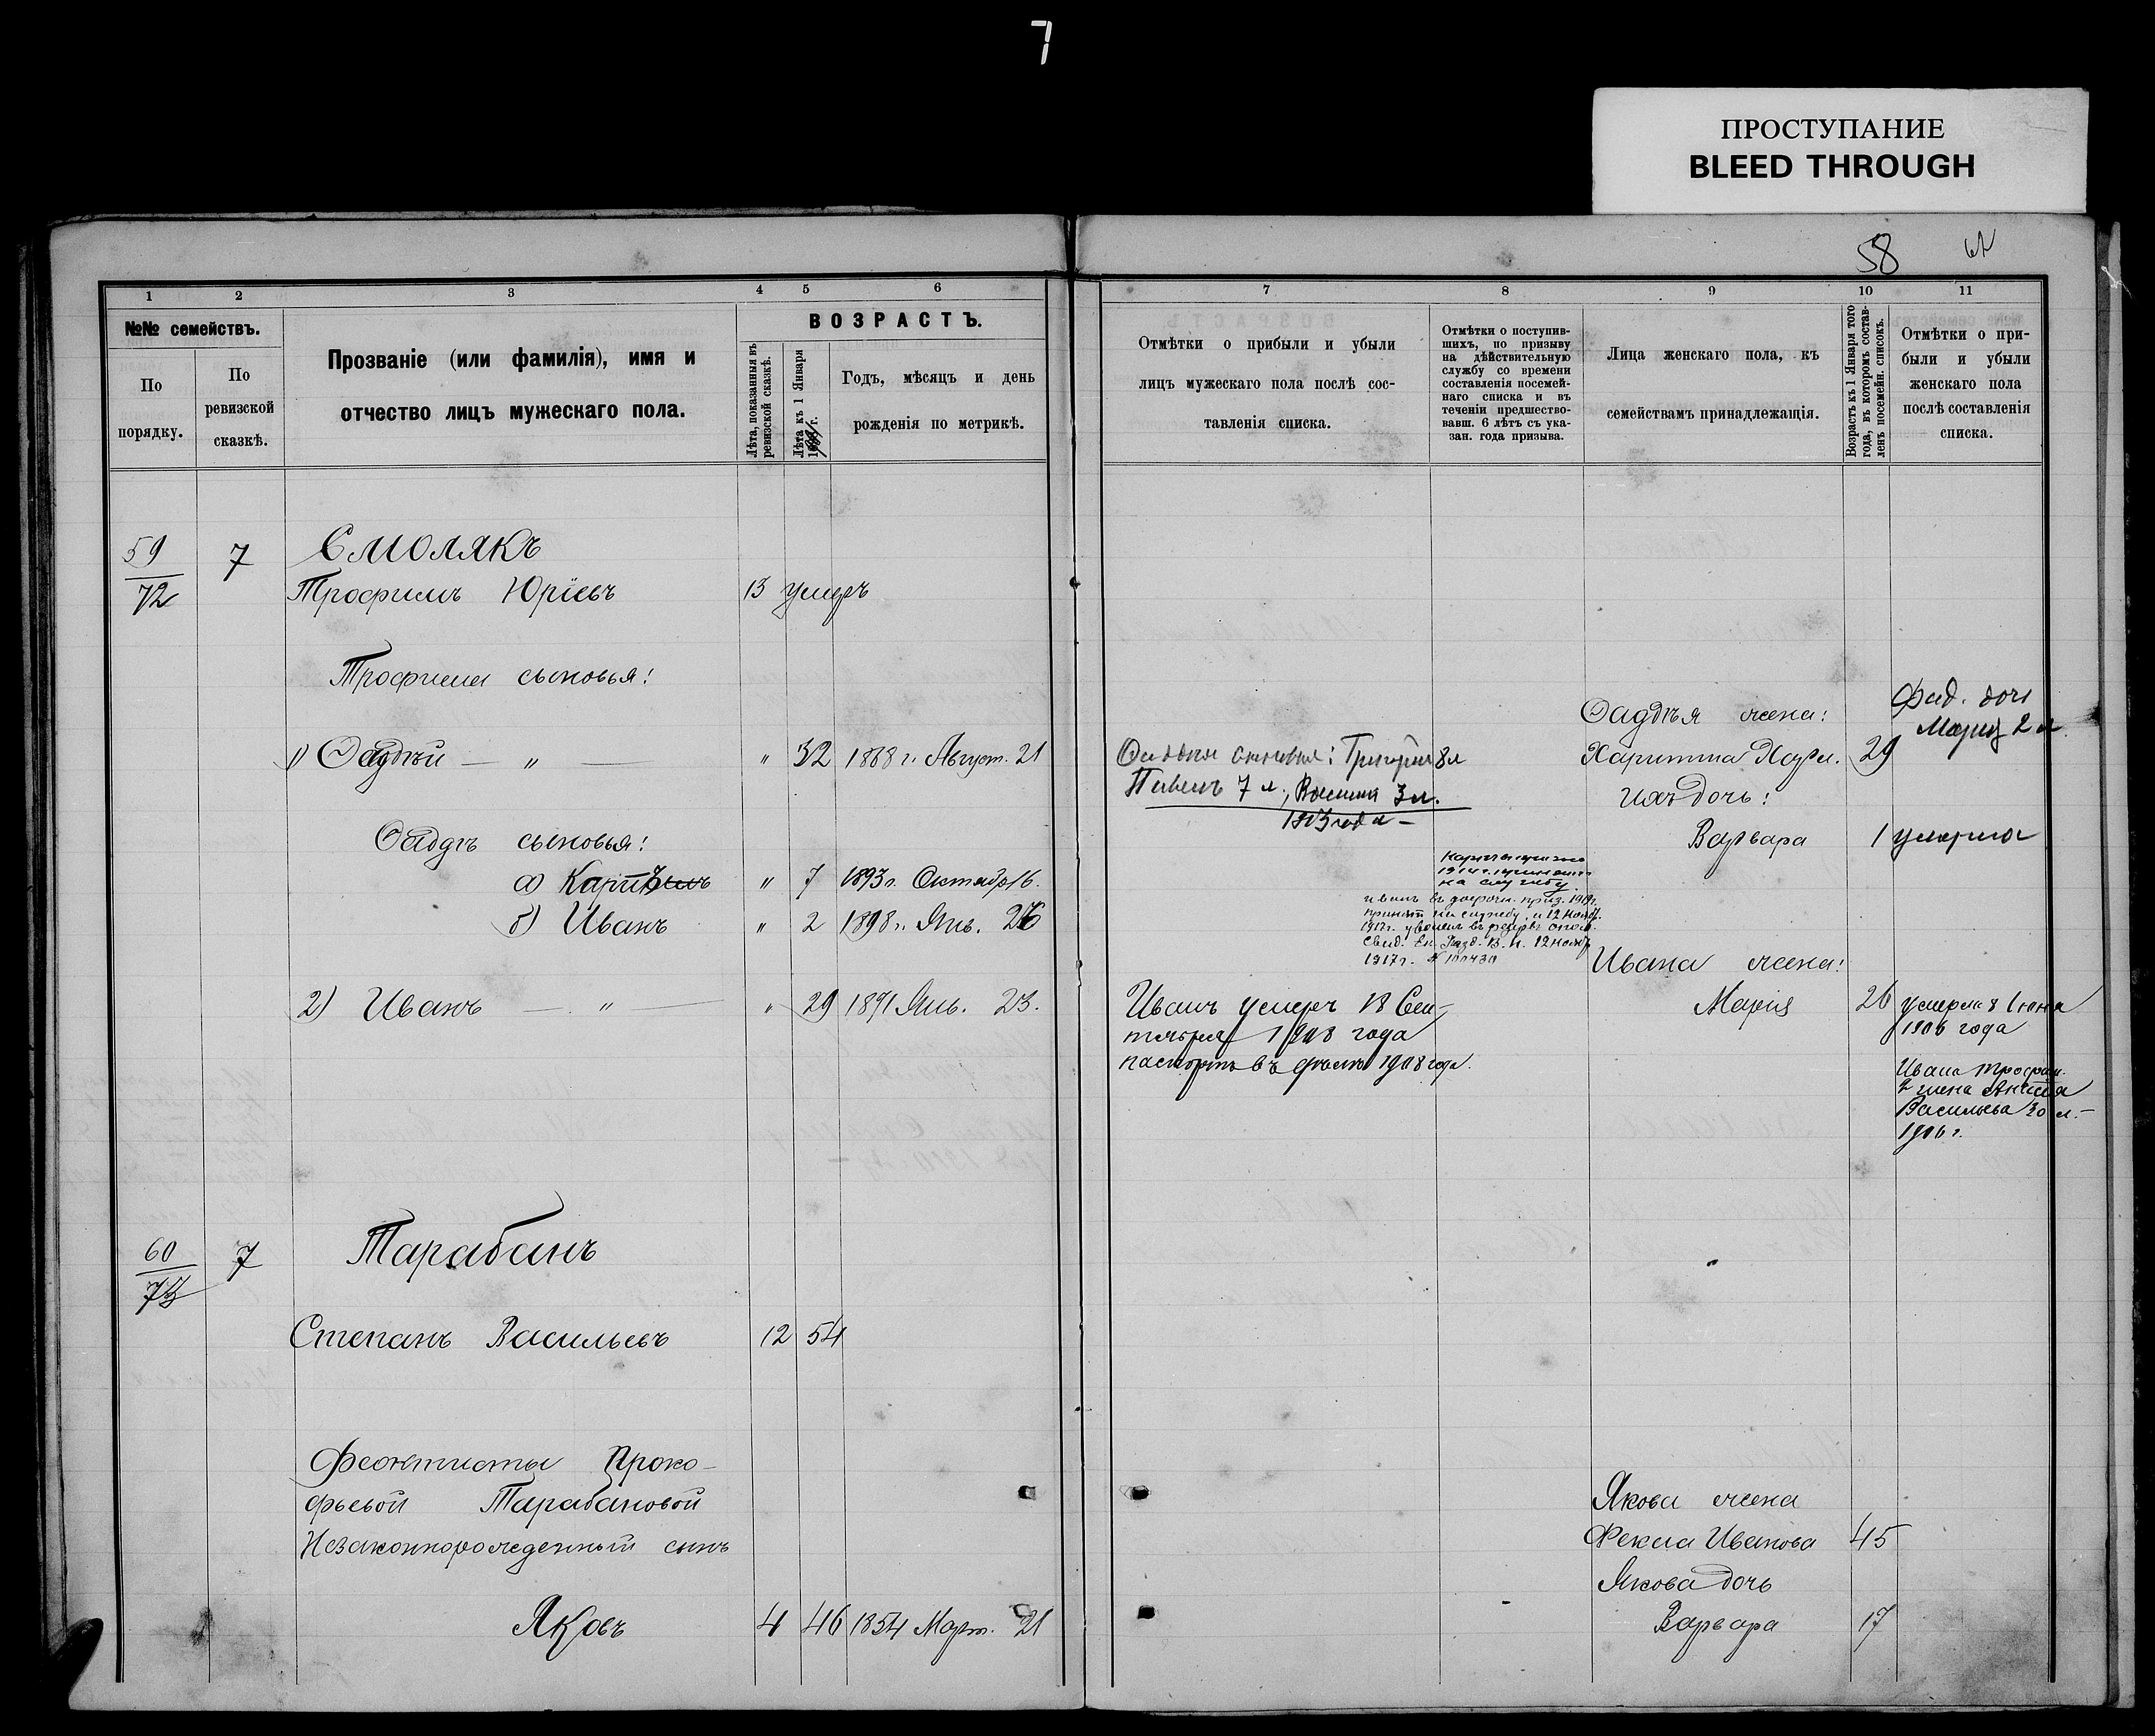 7
ПРОСТУПАНИЕ
BLEED THROUGH
58
62
1 2 3 4 5 6
№№ семействъ.
По порядку.
По ревизской сказкѣ.
Прозваніе (или фамилія), имя и
отчество лицъ мужескаго пола.
ВОЗРАСТЪ.
Лѣта, показанныя въ
ревизской сказкѣ.
Лѣта къ 1 Января
г.
Годъ, мѣсяцъ и день
рожденія по метрикѣ.
7 8 9 10 11
Отмѣтки о прибыли и убыли
лицъ мужескаго пола послѣ сос-
тавленія списка.
Отмѣтки о поступив-
шихъ, по призыву
на дѣйствительную
службу со времени
составленія посемей-
наго списка и въ
теченіи предшество-
вавш. 6 лѣтъ съ ука-
зан. года призыва.
Лица женскаго пола, къ
семействамъ принадлежащія.
Возрастъ къ 1 Января того
года, въ которомъ состав-
ленъ посемейн. списокъ.
Отмѣтки о при-
были и убыли
женскаго пола
послѣ составленія
списка.
59 7 Смолякъ
72 Трофимъ Юріевъ 13 умеръ
Трофима сыновья:
1) Ѳадѣй — " — " 32 1868 г. Август. 21
Ѳадѣя сыновья:
а) Карпъ " 7 1893 г. Октябр 16.
б) Иванъ " 2 1898 г. Янв. 26
2) Иванъ — " — " 29 1871 Янв. 23.
60 7 Тарабанъ
73
Степанъ Васильевъ 12 54
Феоктисты Проко-
фьевой Тарабановой
Незаконнорожденный сынъ
Яковъ 4 46 1854 Март. 21
Ѳаддея сыновья: Григорий 8 л
Павелъ 7 л., 3 л.
1903 года —
1914 г. принят
на службу.
Иванъ въ досрочн. приз.
принят на службу, и 12 Нояб.
1917 г. уволен въ
Свид. 12 нояб
1917 г. №
Иванъ умеръ 18 Сен-
тября 1908 года
паспортъ въ 1908 года.
Ѳадѣя жена:
Харитина 29
Ихъ дочь:
Варвара 1 умерла
Фад. дочь
Мария 2 л.
Ивана жена:
Марія 26 умерла 8 Іюня
1906 года
Ивана Трофим.
2 жена
Васильева 30 л. —
1906 г.
Якова жена
Фекла Иванова 45
Якова дочь
Варвара 17